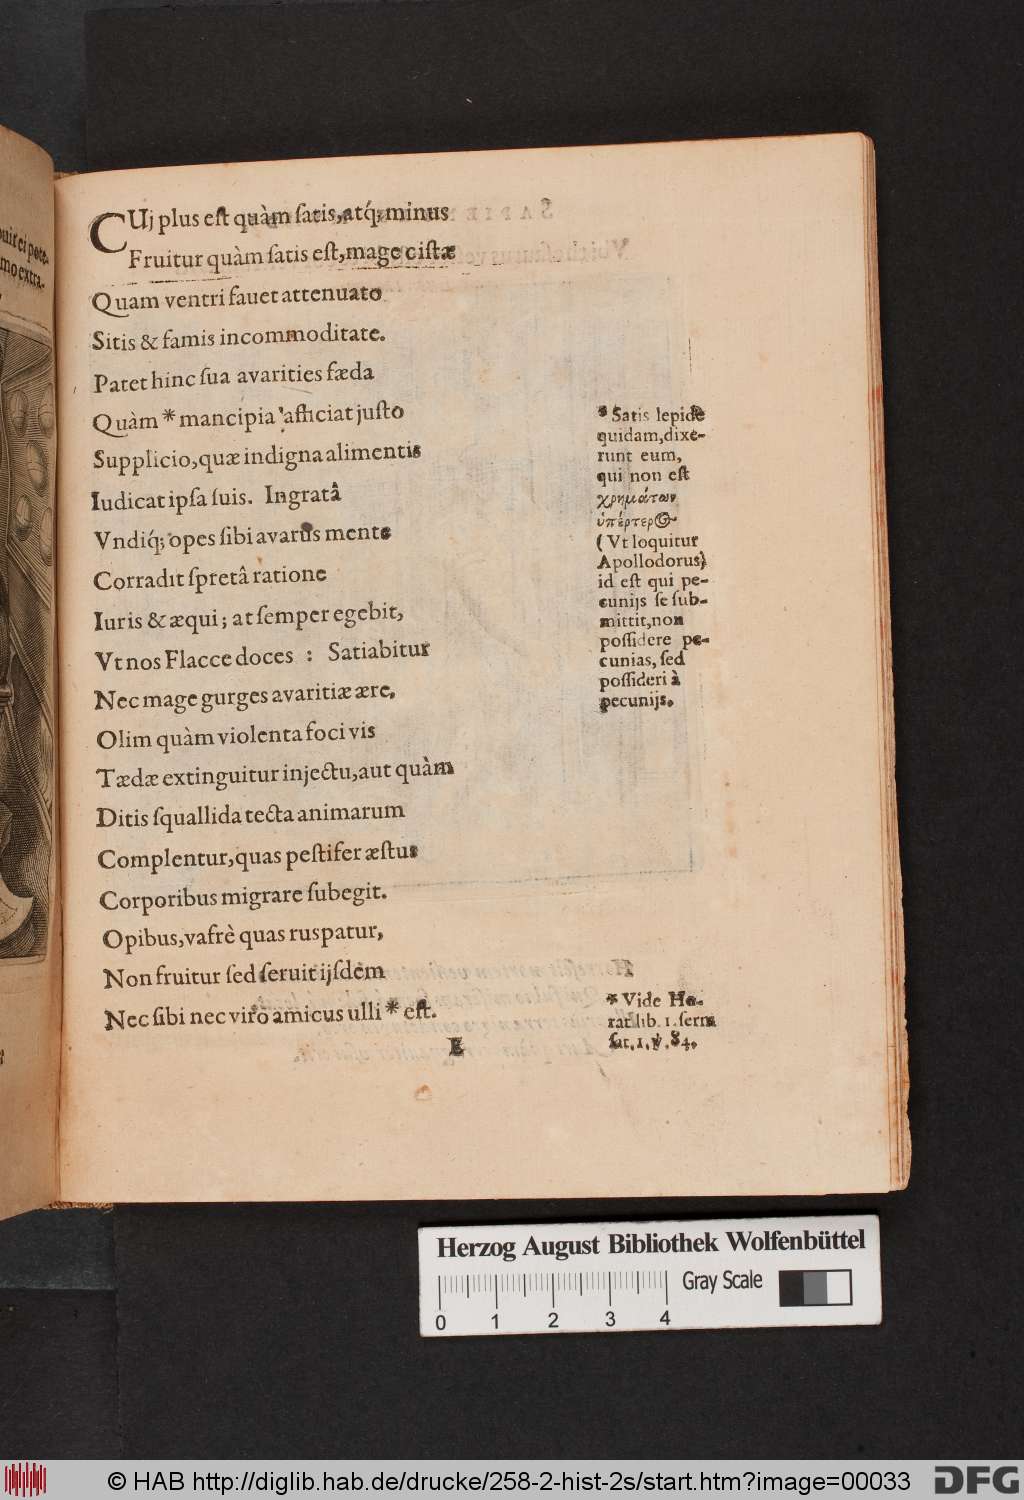 CUj plus est quàm satis, atq́; minus
Fruitur quàm satis est, mage cistæ
Quam ventri fauet attenuato
Sitis & famis incommoditate.
Patet hinc sua avarities fæda
Quàm * mancipia afficiat justo
Supplicio, quæ indigna alimentis
Iudicat ipsa suis. Ingratâ
Vndiq́; opes sibi avarus mente
Corradit spretâ ratione
Iuris & æqui; at semper egebit,
Vt nos Flacce doces : Satiabitur
Nec mage gurges avaritiæ ære,
Olim quàm violenta foci vis
Tædæ extinguitur injectu, aut quàm
Ditis squallida tecta animarum
Complentur, quas pestifer æstus
Corporibus migrare subegit.
Opibus, vafrè quas ruspatur,
Non fruitur sed seruit ijsdem
Nec sibi nec viro amicus ulli * est.
E
* Satis lepide
quidam, dixe-
runt eum,
qui non est
χρημάτων
ὑπέρτερος
(Vt loquitur
Apollodorus)
id est qui pe-
cunijs se sub-
mittit, non
possidere pe-
cunias, sed
possideri à
pecunijs.
* Vide Ho-
rat. lib. 1. serm
sat. 1. v. 84.
Herzog August Bibliothek Wolfenbüttel
Gray Scale
0 1 2 3 4
© HAB http://diglib.hab.de/drucke/258-2-hist-2s/start.htm?image=00033
DFG